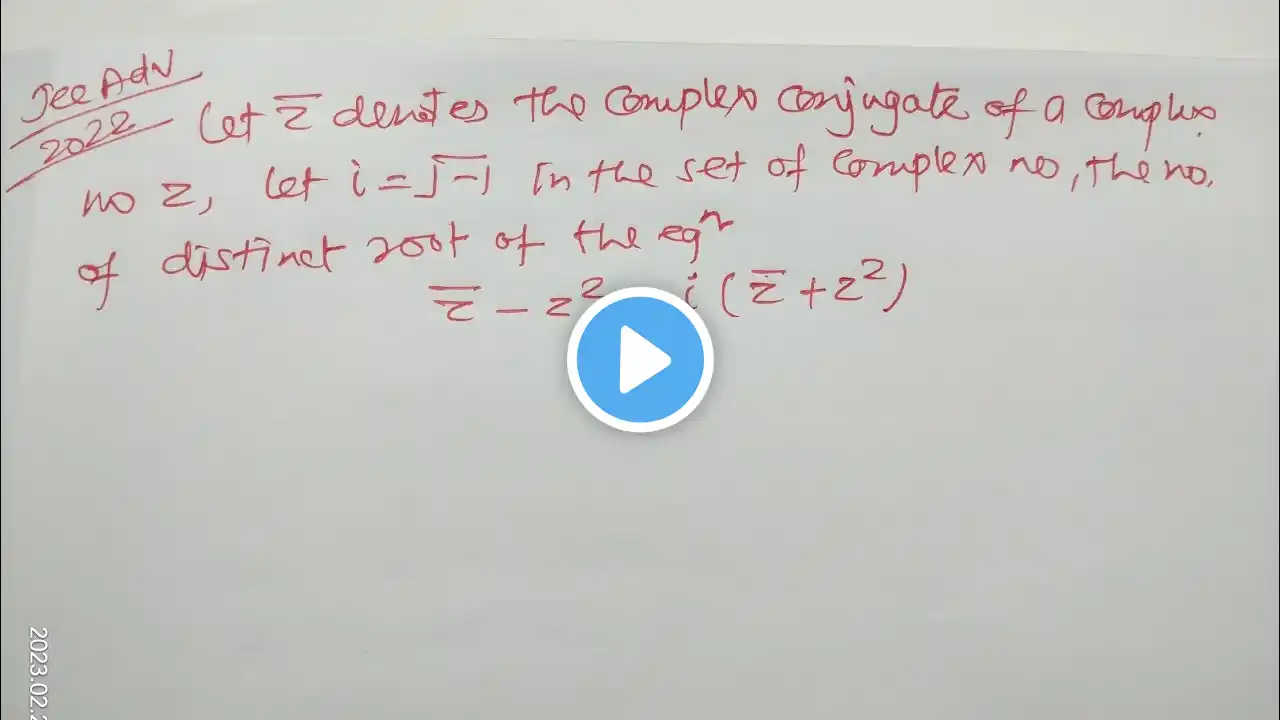 Jee Adv
2022
Let z̅ denotes the complex conjugate of a complex
no z, let i = √-1 In the set of complex no, the no.
of distinct root of the eqⁿ
z̅ - z² i (z̅ + z²)
2023.02.2